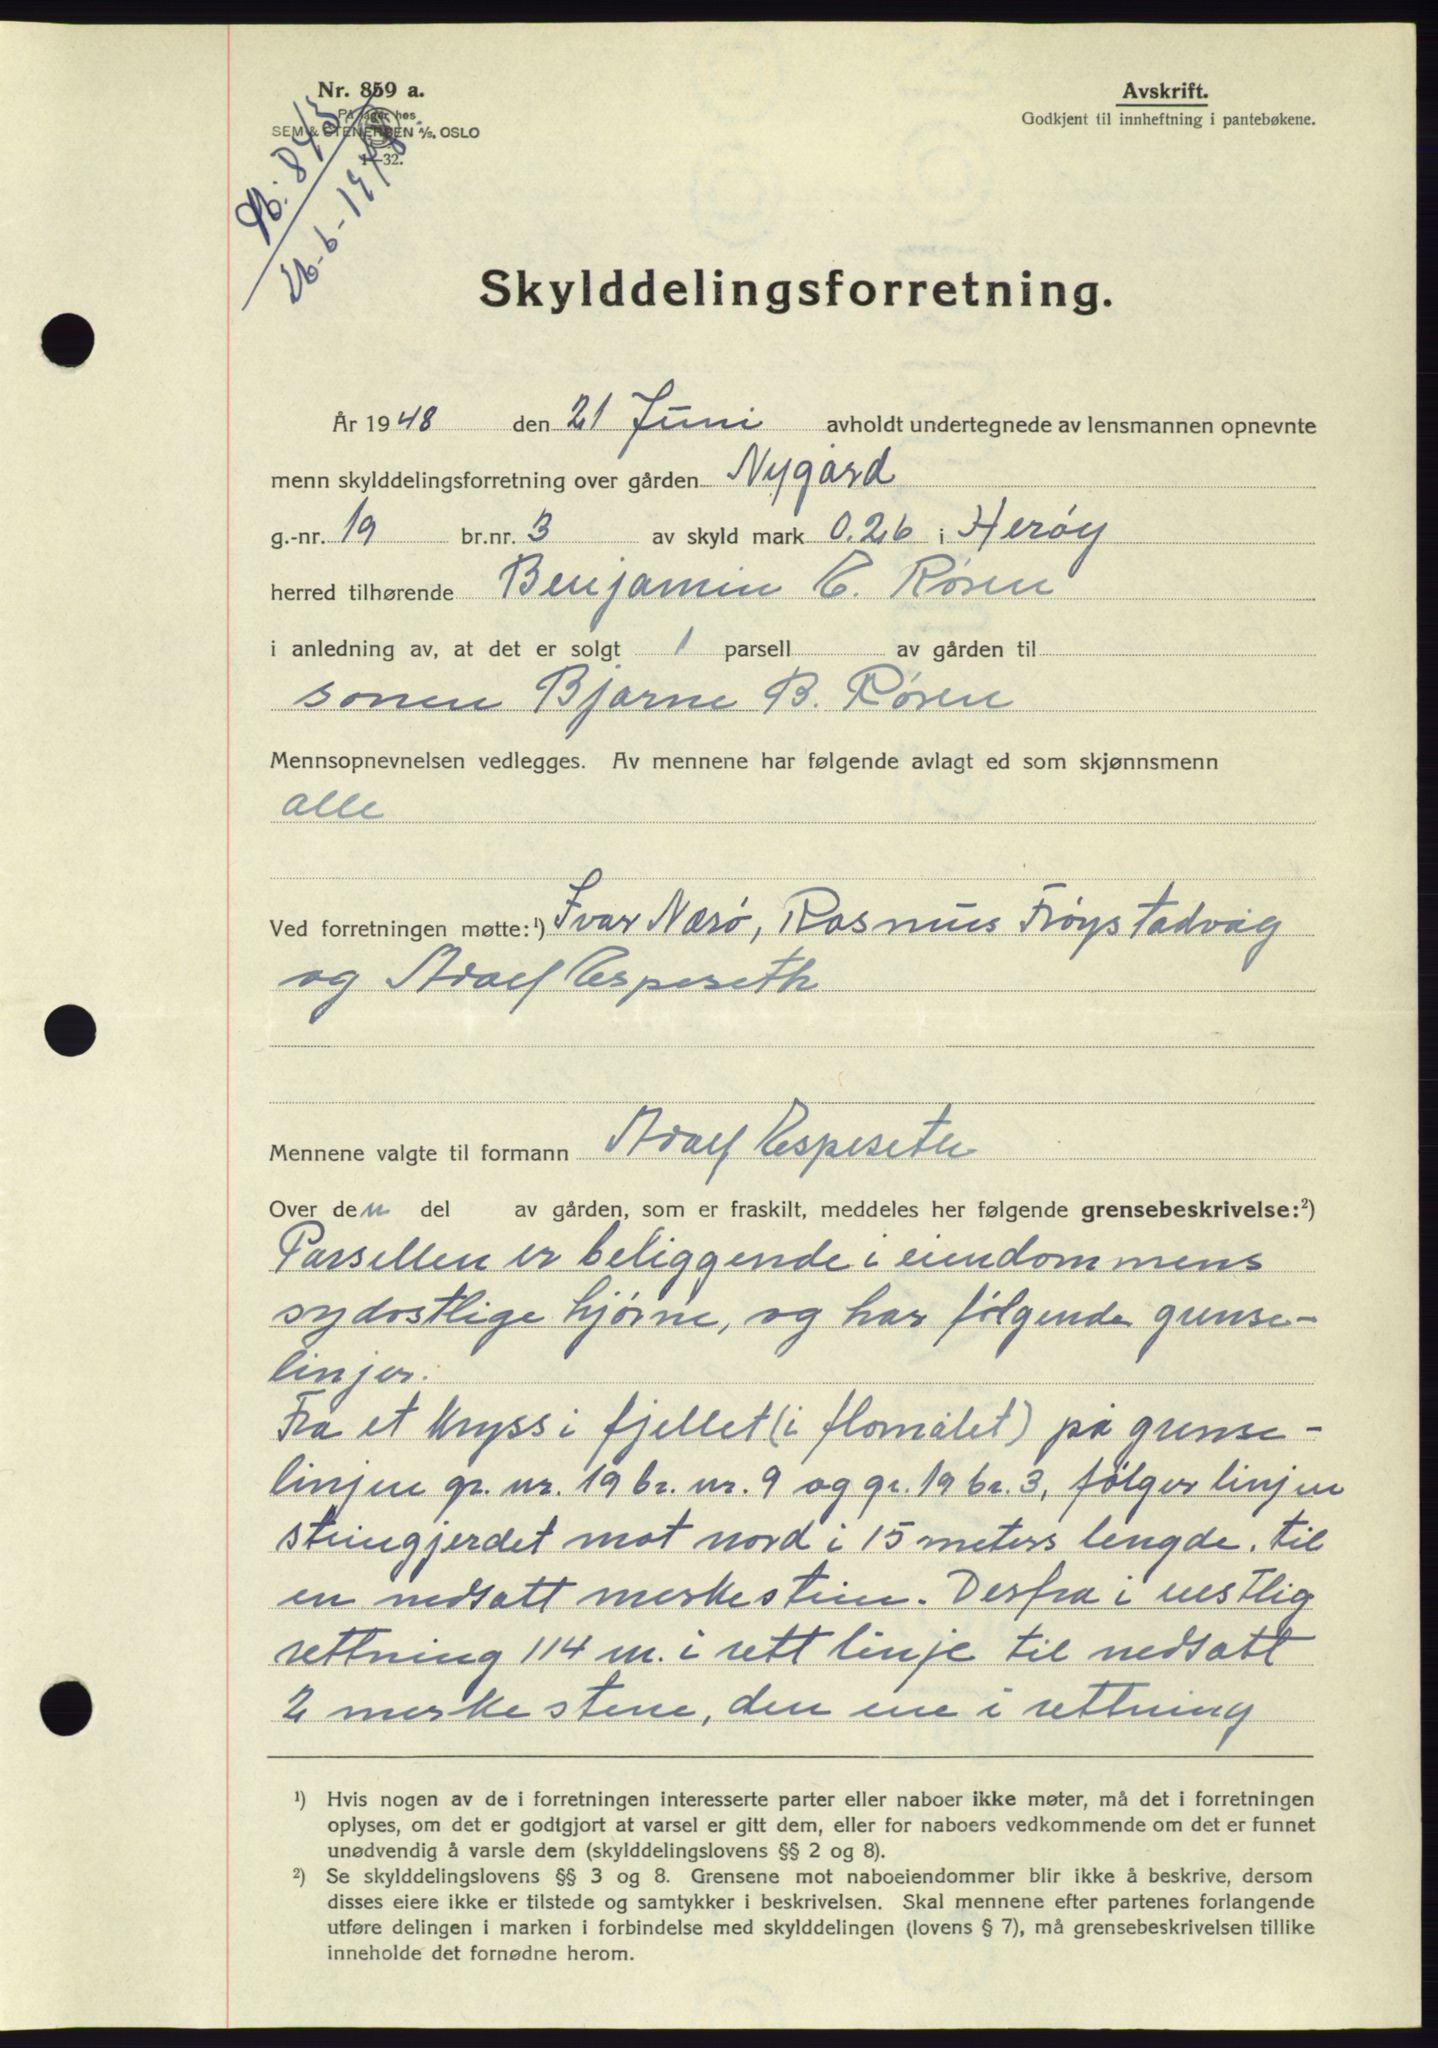 Nr. 859 a.
På lager hes
SEM & STENERSEN A/S, OSLO
1—32.
Avskrift.
Godkjent til innheftning i pantebøkene.
Nr. 843
26-6-1948
Skylddelingsforretning.
År 1948 den 21 Juni avholdt undertegnede av lensmannen opnevnte
menn skylddelingsforretning over gården Nygård
g.-nr. 19 br.nr. 3 av skyld mark 0.26 i Herøy
herred tilhørende Benjamin E. Røsen
i anledning av, at det er solgt 1 parsell av gården til
sonen Bjarne B. Røsen
Mennsopnevnelsen vedlegges. Av mennene har følgende avlagt ed som skjønnsmenn
alle
Ved forretningen møtte:¹) Ivar Nærø, Rasmus Frøystadvåg
og Adolf Espeseth
Mennene valgte til formann Adolf Espeseth
Over den del av gården, som er fraskilt, meddeles her følgende grensebeskrivelse:²)
Parsellen er beliggende i eiendommens
sydøstlige hjørne, og har følgende grense-
linjer.
Fra et kryss i fjellet (i flomålet) på grense-
linjen gr. nr. 19 br. nr. 9 og gr. 19 br. 3, følger linjen
steingjerdet mot nord i 15 meters lengde. til
en nedsatt merkestein. Derfra i vestlig
rettning 114 m. i rett linje til nedsatt
2 merkestene, den ene i rettning
¹) Hvis nogen av de i forretningen interesserte parter eller naboer ikke møter, må det i forretningen
oplyses, om det er godtgjort at varsel er gitt dem, eller for naboers vedkommende om det er funnet
unødvendig å varsle dem (skylddelingslovens §§ 2 og 8).
²) Se skylddelingslovens §§ 3 og 8. Grensene mot naboeiendommer blir ikke å beskrive, dersom
disses eiere ikke er tilstede og samtykker i beskrivelsen. Skal mennene efter partenes forlangende
utføre delingen i marken i forbindelse med skylddelingen (lovens § 7), må grensebeskrivelsen tillike
inneholde det fornødne herom.